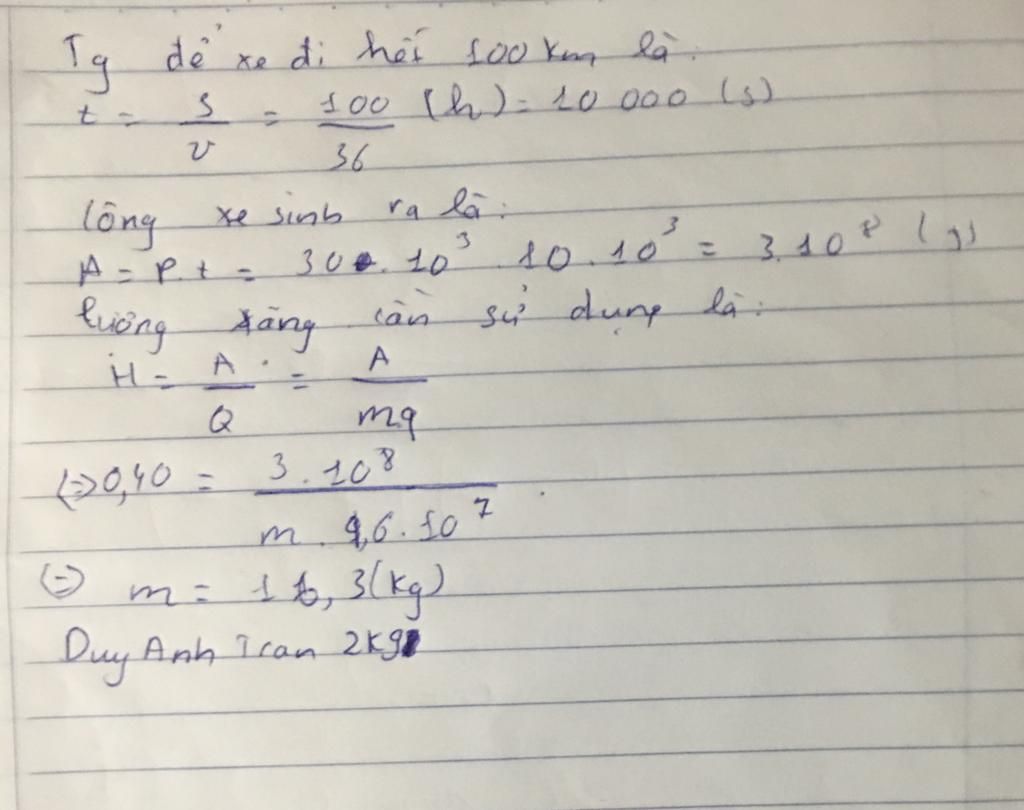 Tg để xe đi hết 100 km là:
t = s/v = 100/36 (h) = 10 000 (s)
Công xe sinh ra là:
A = P.t = 30.10³.10.10³ = 3.10⁸ (J)
lượng xăng cần sử dụng là:
H = A/Q = A/mq
(=) 0,40 = 3.10⁸/m.4,6.10⁷
(=) m = 16,3 (kg)
Duy Anh Tran 2K9